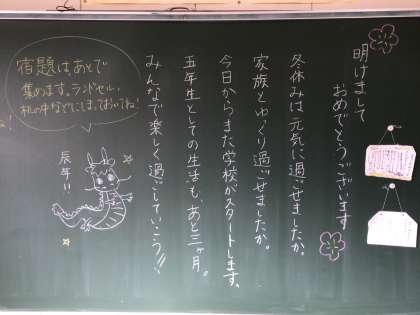 明けまして
おめでとうございます
冬休みは元気に過ごせましたか。
家族とゆっくり過ごせましたか。
今日からまた学校がスタートします。
五年生としての生活も、あと三ヶ月。
みんなで楽しく過ごしていこう!!!
宿題は、あとで
集めます。ランドセル、
机の中などにしまっておいてね!
辰年!!